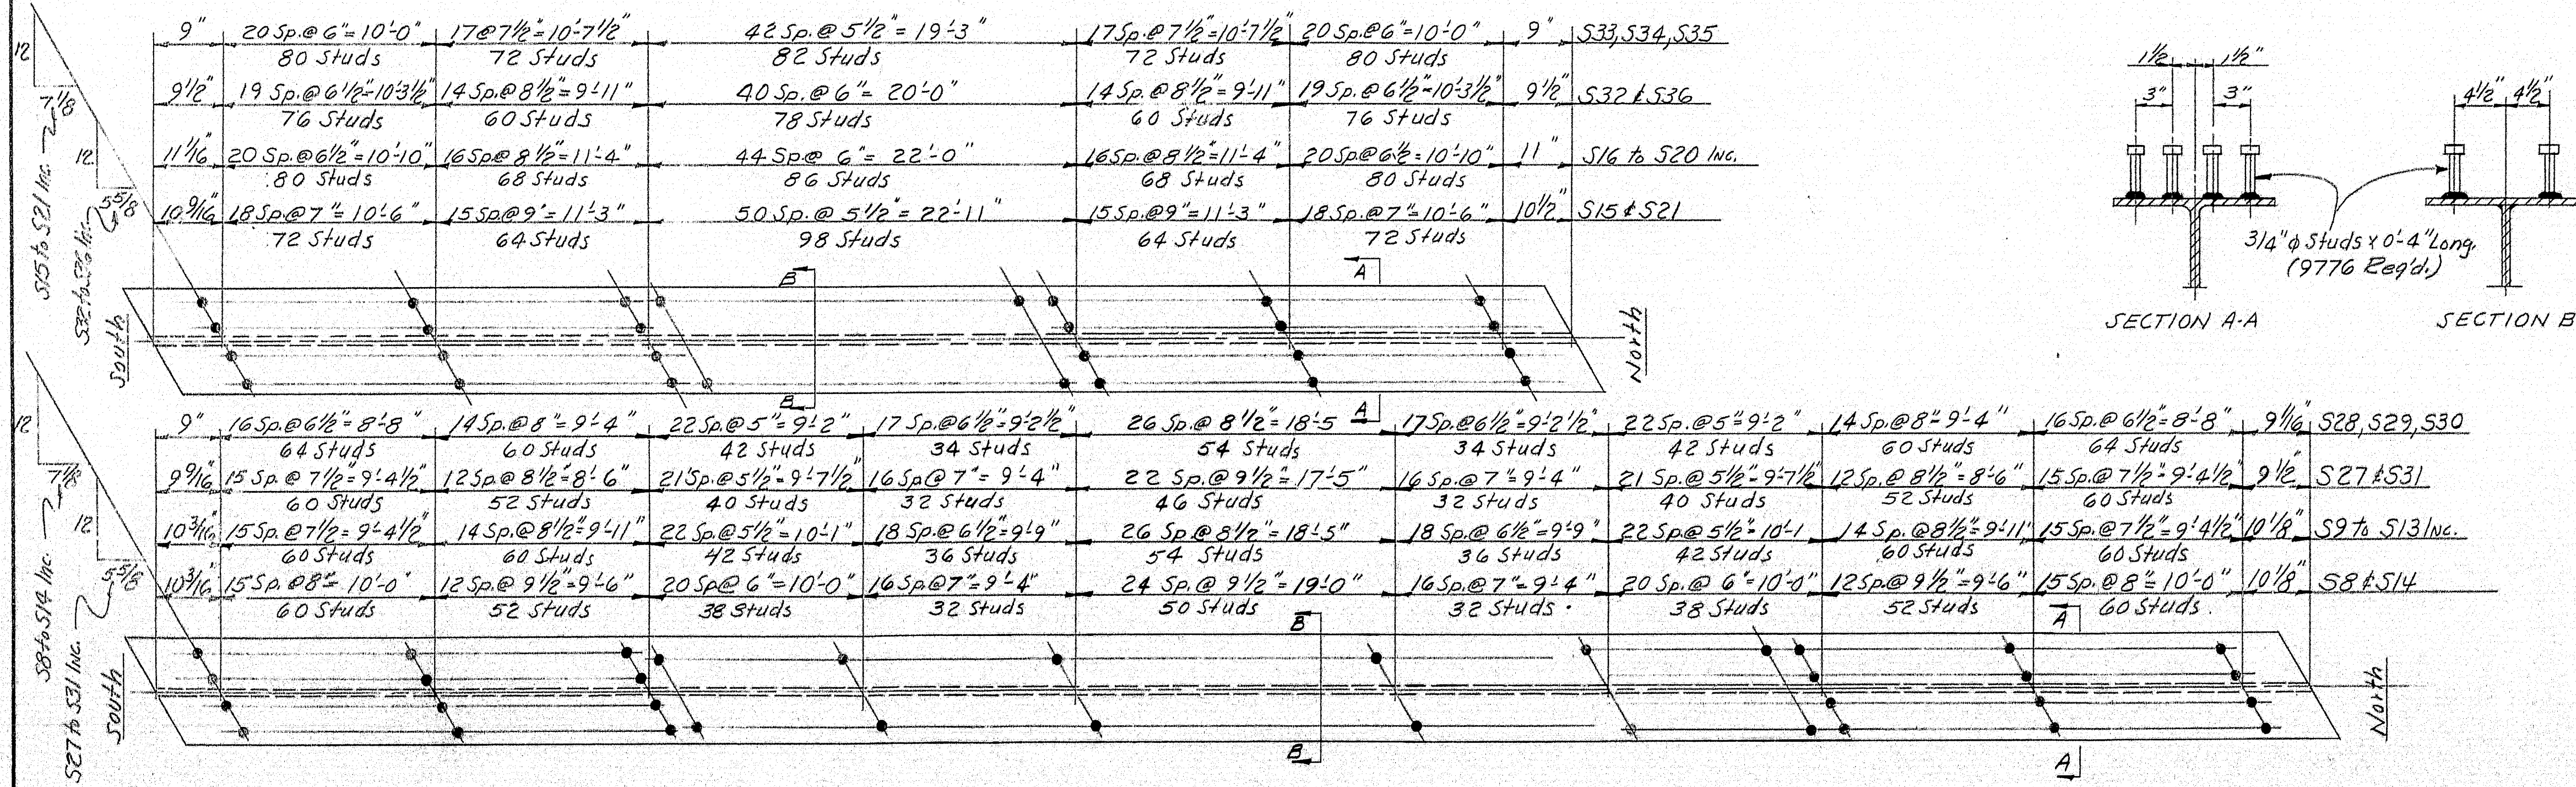 9" 20 Sp.@ 6"=10'-0" 17@7 1/2"=10'-7 1/2" 42 Sp.@ 5 1/2" = 19'-3" 17 Sp.@7 1/2"=10'-7 1/2" 20 Sp.@6"=10'-0" 9" S33,S34,S35
80 Studs 72 Studs 82 Studs 72 Studs 80 Studs
9 1/2" 19 Sp.@6 1/2"=10'-3 1/2" 14 Sp.@8 1/2"=9'-11" 40 Sp.@ 6"= 20'-0" 14 Sp.@8 1/2"=9'-11" 19 Sp.@6 1/2"=10'-3 1/2" 9 1/2" S32 & S36
76 Studs 60 Studs 78 Studs 60 Studs 76 Studs
11 1/16" 20 Sp.@6 1/2"=10'-10" 16 Sp@ 8 1/2"=11'-4" 44 Sp@ 6"= 22'-0" 16 Sp.@8 1/2"=11'-4" 20 Sp@6 1/2=10'-10" 11" S16 to S20 Inc.
80 Studs 68 Studs 86 Studs 68 Studs 80 Studs
10 9/16" 18 Sp.@7"=10'-6" 15 Sp@9"=11'-3" 50 Sp.@ 5 1/2"= 22'-11" 15 Sp.@9"=11'-3" 18 Sp.@7"=10'-6" 10 1/2" S15 & S21
72 Studs 64 Studs 98 Studs 64 Studs 72 Studs
12
7 1/8
12
5 5/8
S15 to S21 Inc.
S32 to S36 Inc.
B
A
South
North
B
A
1 1/2 1 1/2"
3" 3"
4 1/2" 4 1/2"
3/4" φ Studs x 0'-4" Long.
(9776 Req'd.)
SECTION A-A
SECTION B
9" 16 Sp.@6 1/2"=8'-8" 14 Sp.@8"=9'-4" 22 Sp.@5"=9'-2" 17 Sp.@6 1/2"=9'-2 1/2" 26 Sp.@ 8 1/2"=18'-5 17 Sp.@6 1/2"=9'-2 1/2" 22 Sp.@5"=9'-2" 14 Sp.@8"=9'-4" 16 Sp.@ 6 1/2"=8'-8" 9 1/16 S28,S29,S30
64 Studs 60 Studs 42 Studs 34 Studs 54 Studs 34 Studs 42 Studs 60 Studs 64 Studs
9 9/16" 15 Sp.@ 7 1/2"=9'-4 1/2" 12 Sp.@ 8 1/2"=8'-6" 21 Sp.@5 1/2"=9'-7 1/2" 16 Sp@ 7"= 9'-4" 22 Sp.@9 1/2"=17'-5" 16 Sp.@ 7"=9'-4" 21 Sp.@ 5 1/2"=9'-7 1/2" 12 Sp.@ 8 1/2"=8'-6" 15 Sp.@ 7 1/2"=9'-4 1/2" 9 1/2" S27 & S31
60 Studs 52 Studs 40 Studs 32 Studs 46 Studs 32 Studs 40 Studs 52 Studs 60 Studs
10 3/16" 15 Sp.@7 1/2"=9'-4 1/2" 14 Sp.@8 1/2"=9'-11" 22 Sp.@5 1/2"=10'-1" 18 Sp.@ 6 1/2"=9'-9" 26 Sp @ 8 1/2"=18'-5" 18 Sp.@ 6 1/2"=9'-9" 22 Sp.@ 5 1/2"=10'-1 14 Sp.@8 1/2"=9'-11" 15 Sp.@7 1/2"=9'-4 1/2" 10 1/8" S9 to S13 Inc.
60 Studs 60 Studs 42 Studs 36 Studs 54 Studs 36 Studs 42 Studs 60 Studs 60 Studs
10 3/16" 15 Sp.@8"= 10'-0" 12 Sp.@ 9 1/2"=9'-6" 20 Sp@ 6"=10'-0" 16 Sp.@7"=9'-4" 24 Sp.@ 9 1/2"=19'-0" 16 Sp.@7"=9'-4" 20 Sp.@ 6"=10'-0" 12 Sp@9 1/2"=9'-6" 15 Sp.@ 8"=10'-0" 10 1/8" S8 & S14
60 Studs 52 Studs 38 Studs 32 Studs 50 Studs 32 Studs 38 Studs 52 Studs 60 Studs
12
7 1/8
12
5 5/8
S8 to S14 Inc.
S27 to S31 Inc.
B
A
South
North
B
A